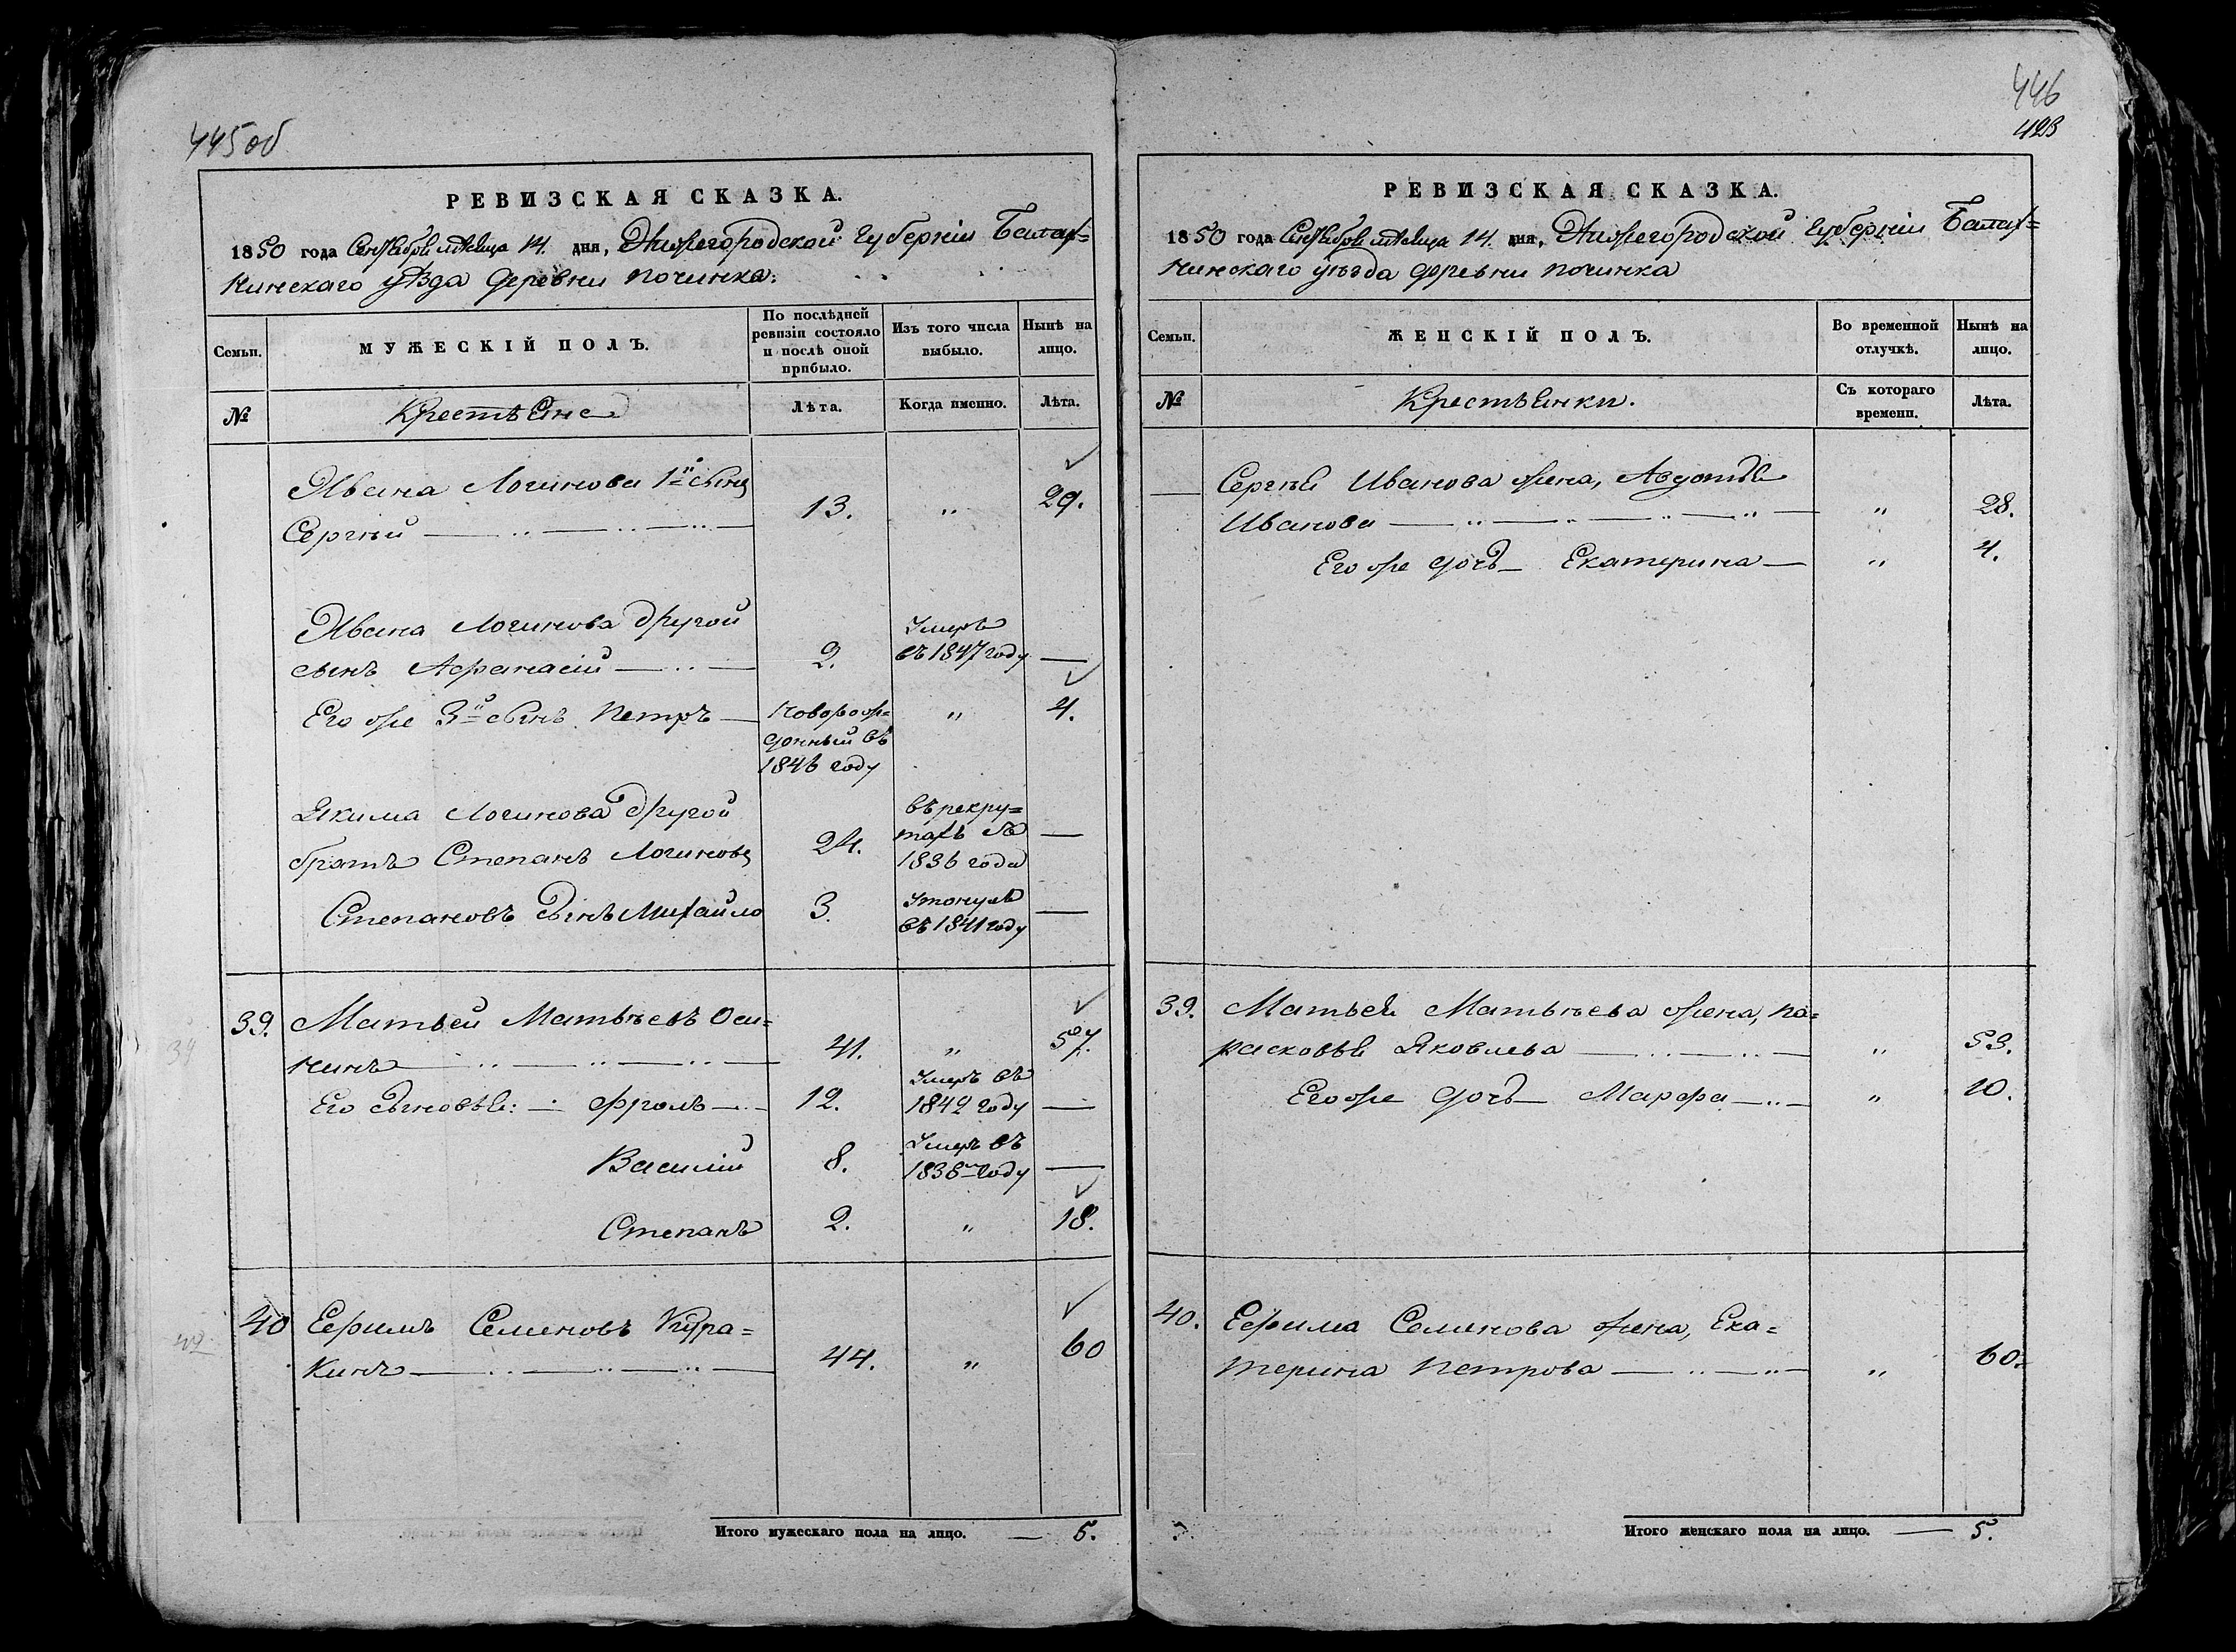 445об
РЕВИЗСКАЯ СКАЗКА.
1850 года Сентября мѣсяца 14. дня, Нижегородской Губерніи Балах=
нинскаго уѣзда деревни Починка.
Семьи.
МУЖЕСКІЙ ПОЛЪ.
По послѣдней ревизіи состояло и послѣ оной прибыло.
Изъ того числа выбыло.
Нынѣ на лицо.
№
Крестьяне
Лѣта.
Когда именно.
Лѣта.
Ивана Логинова 1й сынъ
Сергѣй 13. " 29.
Ивана Логинова другой
сынъ Афанасій 2. Умеръ въ 1847 году —
Его же 3й сынъ Петръ Новорож=
денный въ
1846 году " 4.
Якима Логинова другой
братъ Степанъ Логиновъ 24. въ рекру=
тахъ съ
1836 года —
Степановъ сынъ Михайло 3. Утонулъ
въ 1841 году —
39. Матвей Матвѣевъ Оси=
нинъ 41. " 57.
Его сыновья: Фролъ 12. Умеръ въ
1842 году —
Василій 8. Умеръ въ
1838м году —
Степанъ 2. " 18.
40 Ефимъ Семеновъ Кура=
кинъ 44. " 60
Итого мужескаго пола на лицо. — 5.
446
423
РЕВИЗСКАЯ СКАЗКА.
1850 года Сентября мѣсяца 14. дня, Нижегородской Губерніи Балах=
нинскаго уѣзда деревни Починка
Семьи.
ЖЕНСКІЙ ПОЛЪ.
Во временной отлучкѣ.
Нынѣ на лицо.
№
Крестьянки.
Съ котораго времени.
Лѣта.
Сергѣя Иванова жена, Авдотья
Иванова " 28.
Его же дочь Екатерина " 4.
39. Матвея Матвѣева жена, Па=
расковья Яковлева " 53.
Его же дочь Марфа " 10.
40. Ефима Семенова жена, Ека=
терина Петрова " 60.
Итого женскаго пола на лицо. — 5.